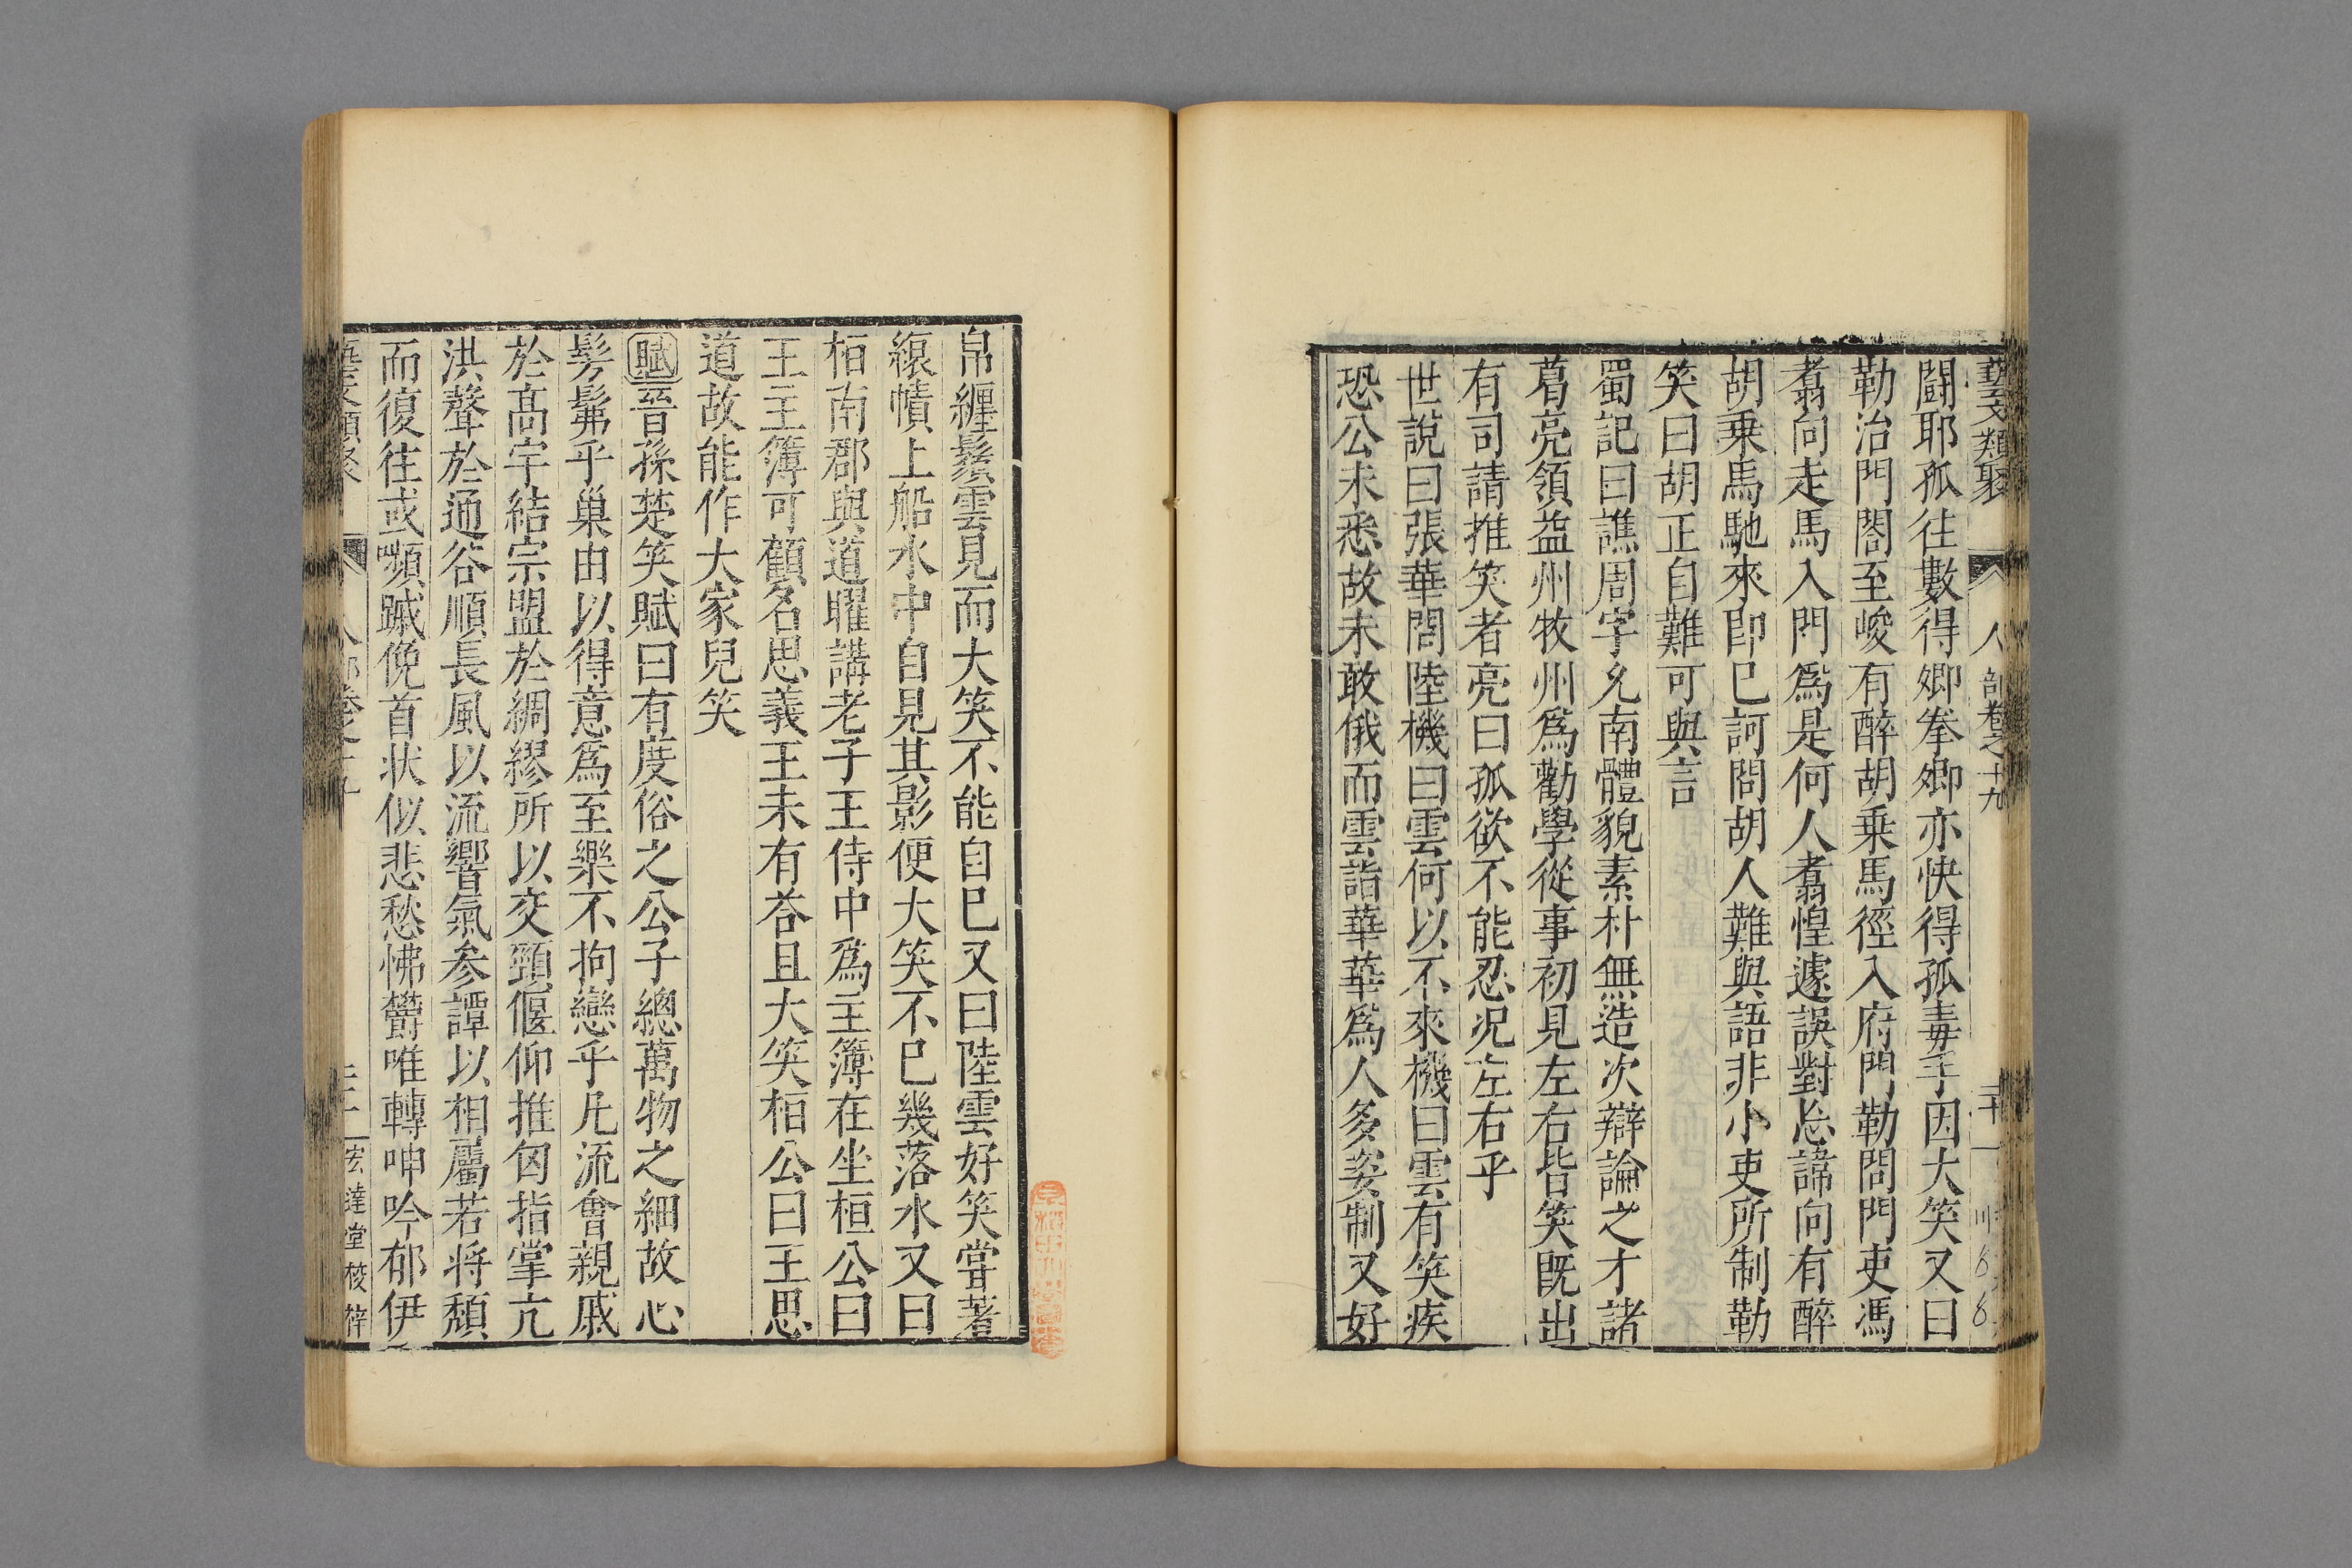 藝文類聚 人部卷之十九 二十一
鬪耶孤往數得卿拳卿亦快得孤毒手因大笑又曰
勒治門閤至峻有醉胡乗馬徑入府門勒問門吏馮
翥向走馬入門爲是何人翥惶遽誤對忘諱向有醉
胡乗馬馳來即已訶問胡人難與語非小吏所制勒
笑曰胡正自難可與言
蜀記曰譙周字允南體貌素朴無造次辯論之才諸
葛亮領益州牧州爲勸學從事初見左右皆笑既出
有司請推笑者亮曰孤欲不能忍况左右乎
世說曰張華問陸機曰雲何以不來機曰雲有笑疾
恐公未悉故未敢俄而雲詣華華爲人多姿制又好
帛纏鬚雲見而大笑不能自已又曰陸雲好笑嘗著
縗幘上船水中自見其影便大笑不已幾落水又曰
桓南郡與道曜講老子王侍中爲主簿在坐桓公曰
王主簿可顧名思義王未有荅且大笑桓公曰王思
道故能作大家兒笑
賦晉孫楚笑賦曰有度俗之公子總萬物之細故心
髣髴乎巢由以得意爲至樂不拘戀乎凡流會親戚
於髙宇結宗盟於綢繆所以交頸偃仰推匈指掌亢
洪聲於通谷順長風以流響氣參譚以相屬若将頹
而復往或嚬蹙俛首状似悲愁怫欝唯轉呻吟郁伊
宏達堂校梓